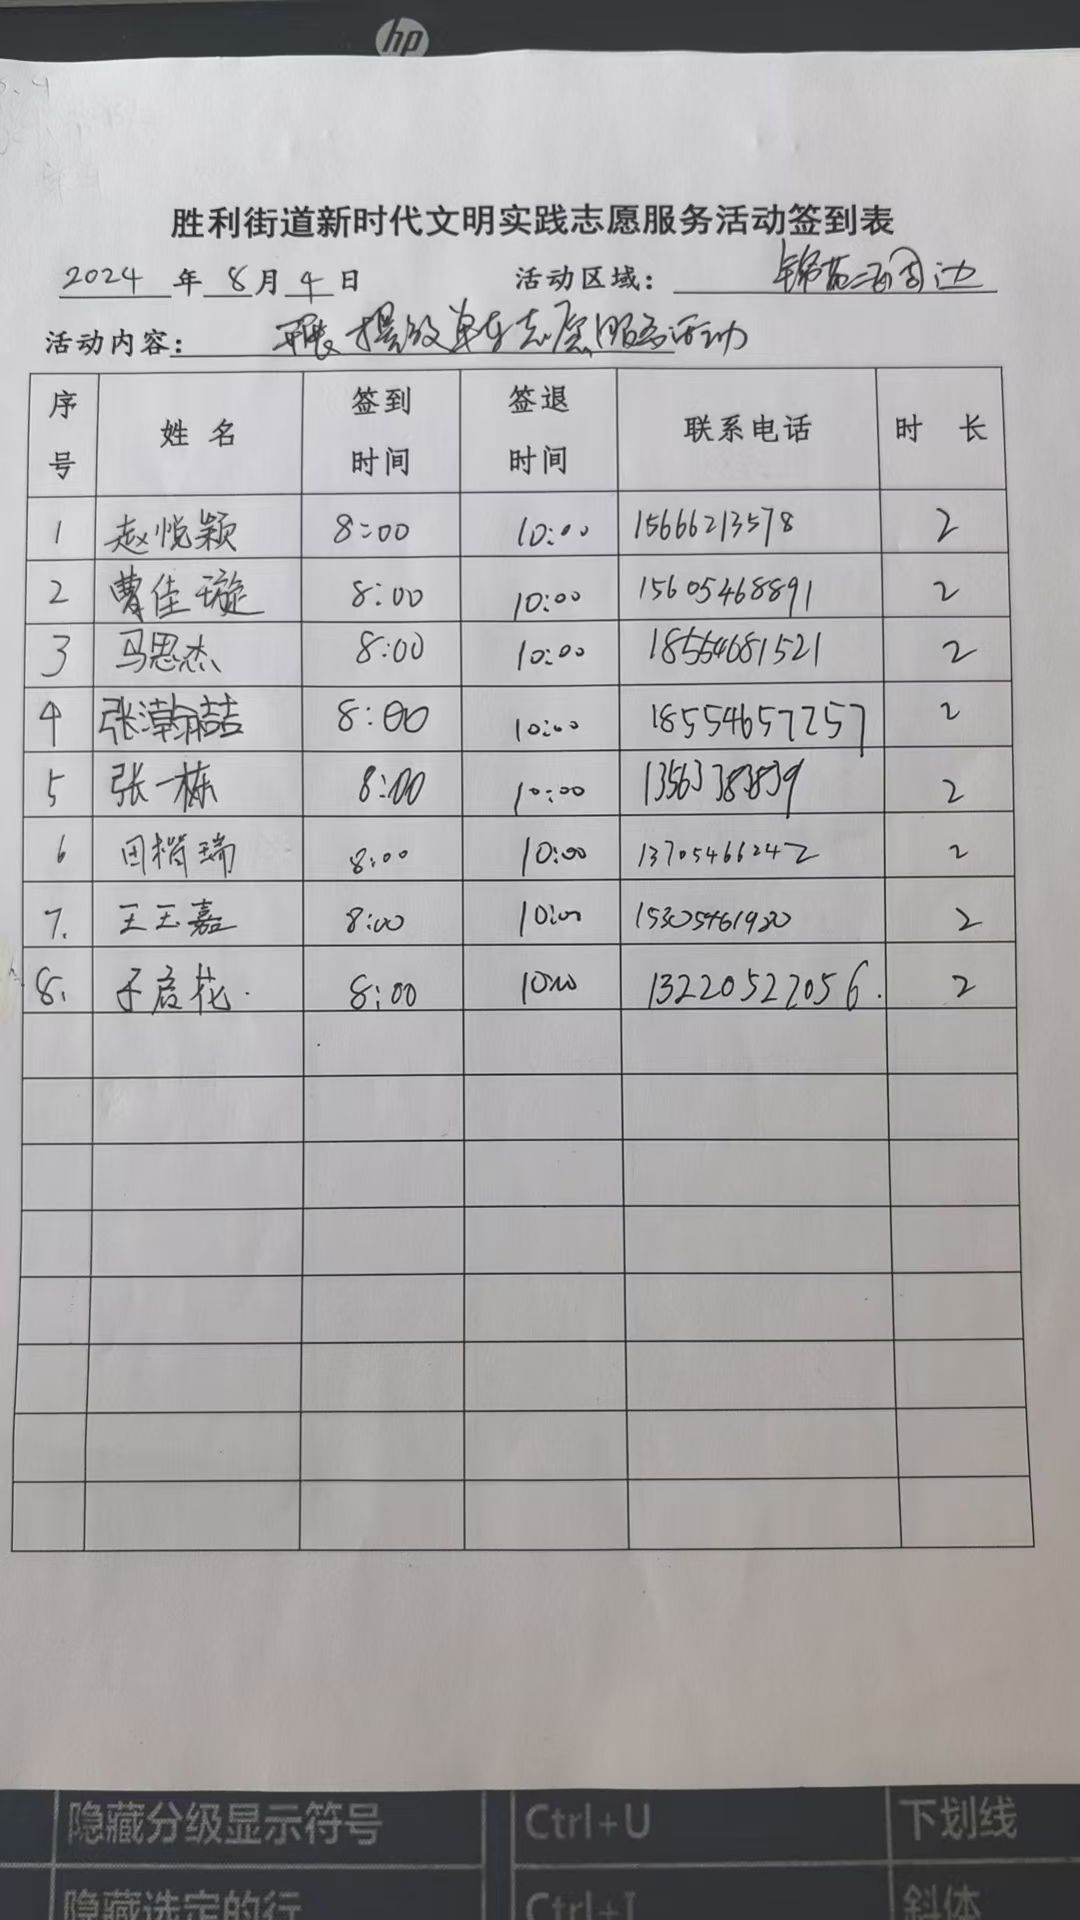 hp
胜利街道新时代文明实践志愿服务活动签到表
2024 年 8 月 4 日 活动区域: 锦苑二区周边
活动内容: 开展摆放单车志愿服务活动
序号 姓名 签到时间 签退时间 联系电话 时 长
1 赵悦颖 8:00 10:00 15666213578 2
2 曹佳璇 8:00 10:00 15605468891 2
3 马思杰 8:00 10:00 18554681521 2
4 张瀚喆 8:00 10:00 18554657257 2
5 张一栋 8:00 10:00 13563383839 2
6 田楷瑞 8:00 10:00 13705466242 2
7. 王玉嘉 8:00 10:00 15305461920 2
8. 于启花. 8:00 10:00 13220527056. 2
隐藏分级显示符号 Ctrl+U 下划线
隐藏选定的行 Ctrl+I 斜体